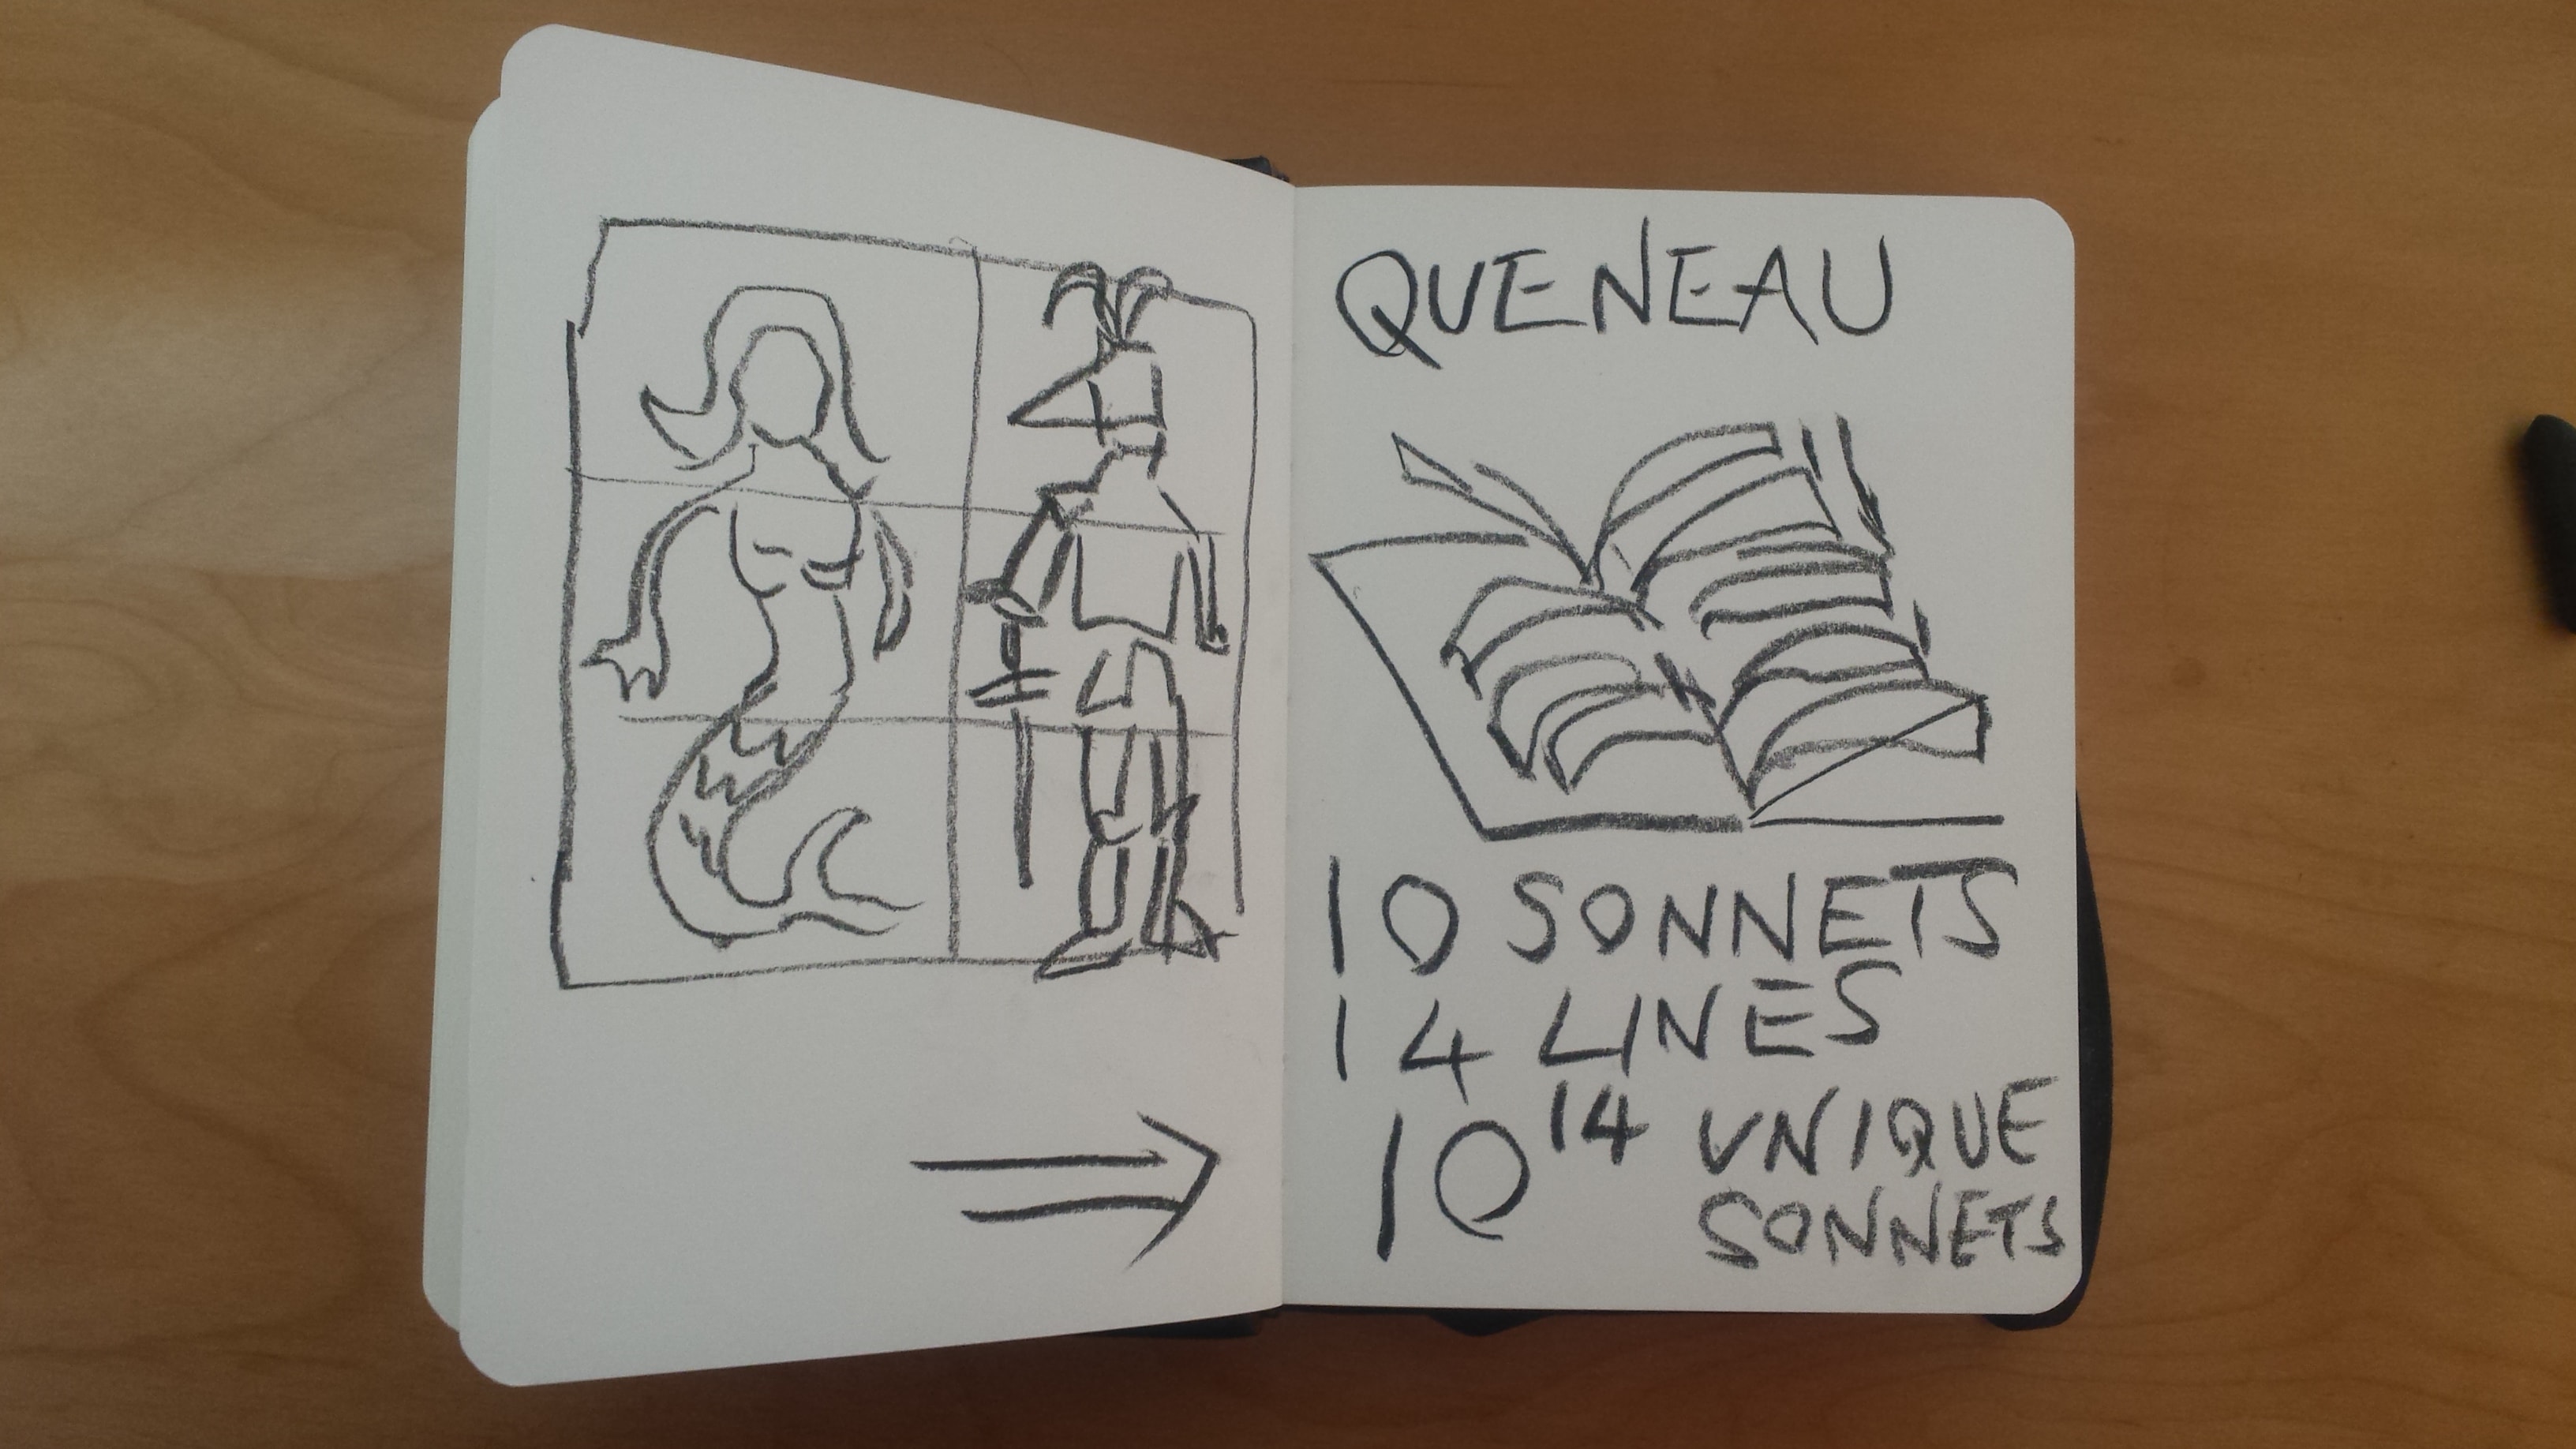 QUENEAU
10 SONNETS
14 LINES
10¹⁴ UNIQUE
SONNETS